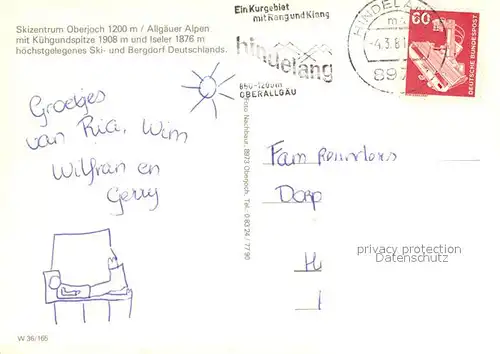 Skizentrum Oberjoch 1200 m / Allgäuer Alpen
mit Kühgundspitze 1908 m und Iseler 1876 m
höchstgelegenes Ski- und Bergdorf Deutschlands.
Ein Kurgebiet
mit Rang und Klang
hindelang
850-1200m
OBERALLGÄU
HINDELANG
-4.3.81
897
60
DEUTSCHE BUNDESPOST
Groetjes
van Ria, Wim
Wilfran en
Gerry
Foto Nachbaur, 8973 Oberjoch, Tel.: 0 83 24 / 77 90
Fam
Dorp
H
privacy protection
Datenschutz
W 36/165